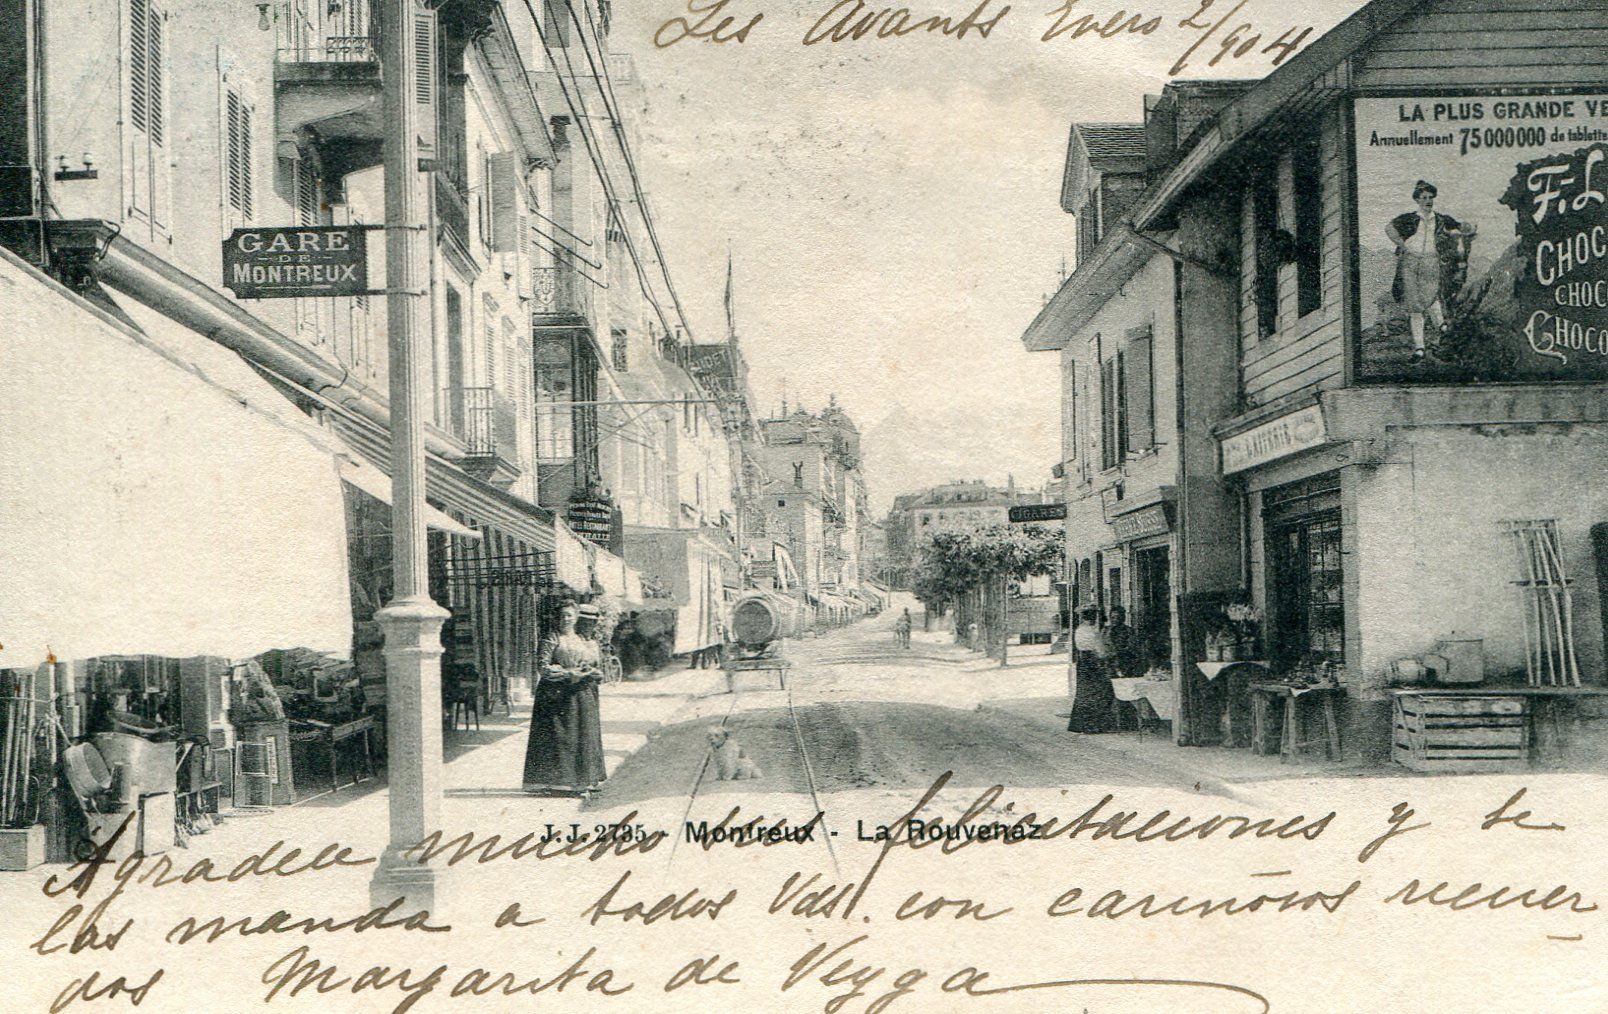 Les Avants Enero 2/904
LA PLUS GRANDE VE
Annuellement 75000000 de tablette
F. L
CHOC
CHOC
CHOCO
GARE
DE
MONTREUX
CIGARES
J.J. 2735 - Montreux - La Rouvenaz
Agradece mucho sus felicitaciones y se
las manda a todos Vds. con cariñosos recuer
dos Margarita de Veyga